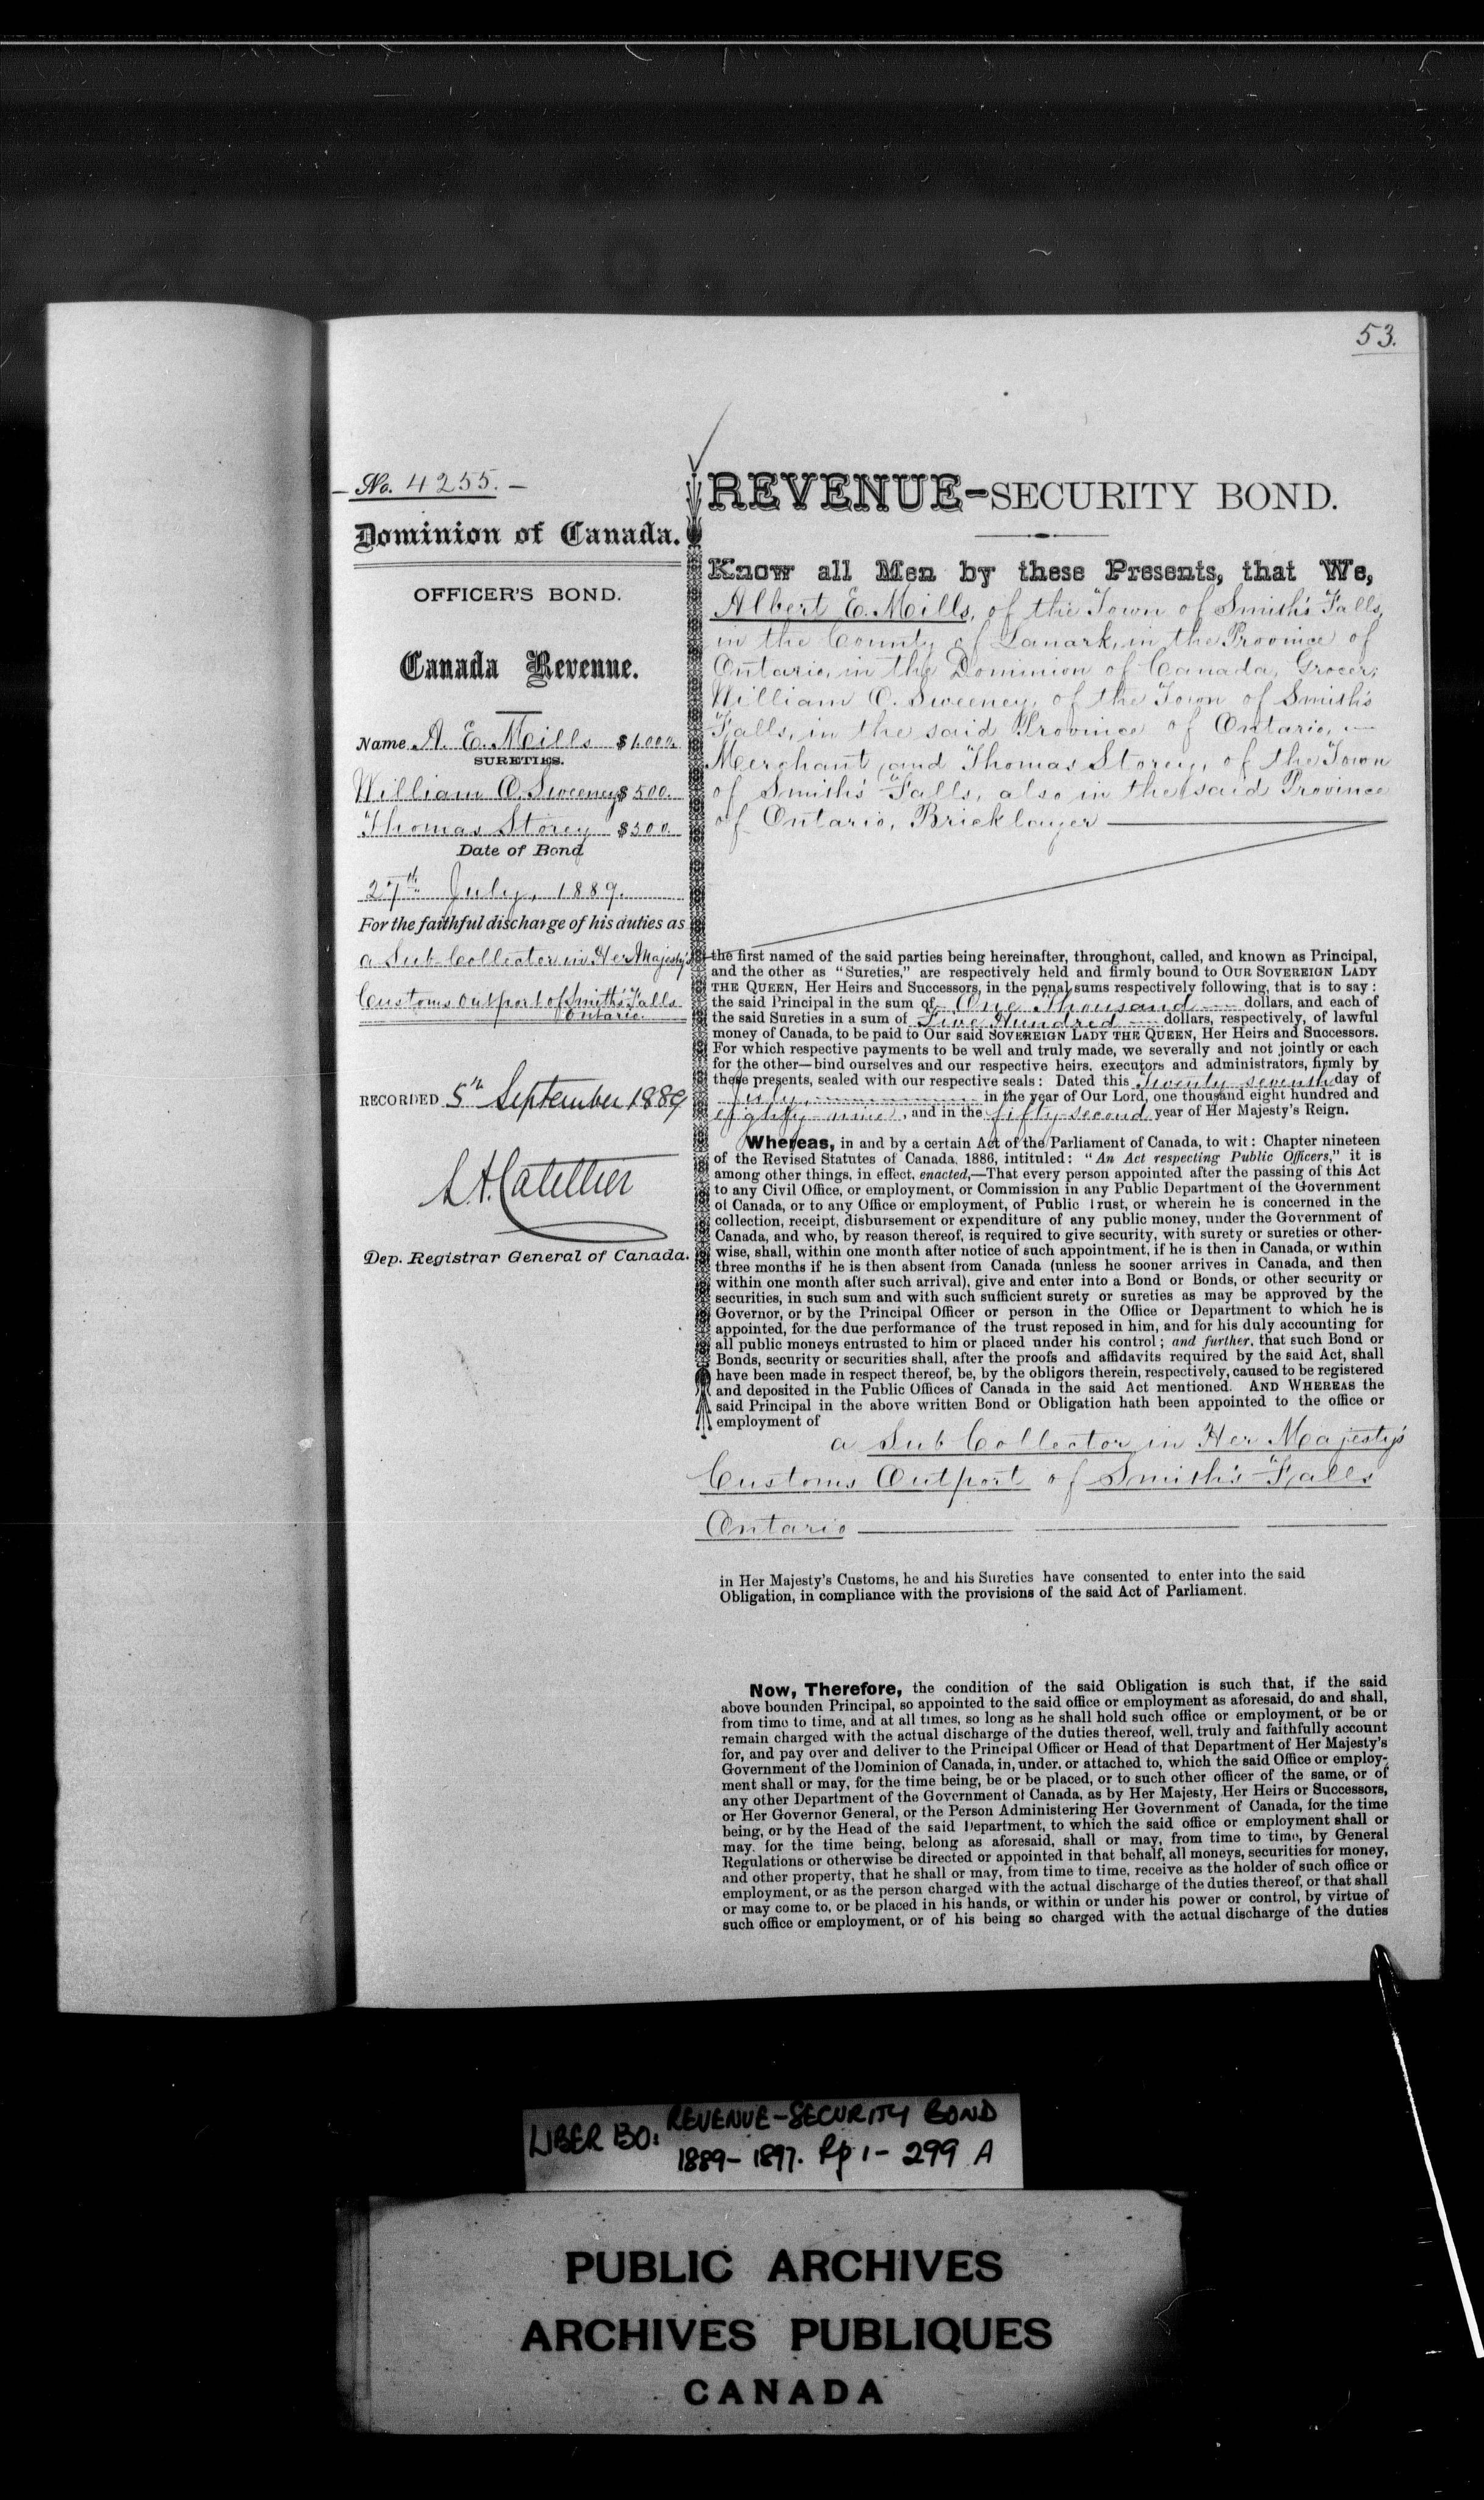 53.
No. 4255.
Dominion of Canada.
OFFICER'S BOND.
Canada Revenue.
Name A. E. Mills $1.000.
SURETIES.
William O. Sweeney $500.
Thomas Storey $500.
Date of Bond
27th July, 1889.
For the faithful discharge of his duties as
a Sub-Collector in Her Majesty's
Customs Outport of Smith's Falls
Ontario.
RECORDED 5th September 1889
L.A. Catellier
Dep. Registrar General of Canada.
REVENUE-SECURITY BOND.
Know all Men by these Presents, that We,
Albert E. Mills, of the Town of Smith's Falls,
in the County of Lanark, in the Province of
Ontario, in the Dominion of Canada, Grocer,
William O. Sweeney, of the Town of Smith's
Falls, in the said Province of Ontario, —
Merchant, and Thomas Storey, of the Town
of Smith's Falls, also in the said Province
of Ontario, Bricklayer
the first named of the said parties being hereinafter, throughout, called, and known as Principal,
and the other as "Sureties," are respectively held and firmly bound to OUR SOVEREIGN LADY
THE QUEEN, Her Heirs and Successors, in the penal sums respectively following, that is to say:
the said Principal in the sum of One Thousand dollars, and each of
the said Sureties in a sum of Five Hundred dollars, respectively, of lawful
money of Canada, to be paid to Our said SOVEREIGN LADY THE QUEEN, Her Heirs and Successors.
For which respective payments to be well and truly made, we severally and not jointly or each
for the other—bind ourselves and our respective heirs, executors and administrators, firmly by
these presents, sealed with our respective seals: Dated this Twenty seventh day of
July, in the year of Our Lord, one thousand eight hundred and
eighty-nine, and in the fifty-second year of Her Majesty's Reign.
Whereas, in and by a certain Act of the Parliament of Canada, to wit: Chapter nineteen
of the Revised Statutes of Canada, 1886, intituled: "An Act respecting Public Officers," it is
among other things, in effect, enacted,—That every person appointed after the passing of this Act
to any Civil Office, or employment, or Commission in any Public Department of the Government
of Canada, or to any Office or employment, of Public Trust, or wherein he is concerned in the
collection, receipt, disbursement or expenditure of any public money, under the Government of
Canada, and who, by reason thereof, is required to give security, with surety or sureties or other-
wise, shall, within one month after notice of such appointment, if he is then in Canada, or within
three months if he is then absent from Canada (unless he sooner arrives in Canada, and then
within one month after such arrival), give and enter into a Bond or Bonds, or other security or
securities, in such sum and with such sufficient surety or sureties as may be approved by the
Governor, or by the Principal Officer or person in the Office or Department to which he is
appointed, for the due performance of the trust reposed in him, and for his duly accounting for
all public moneys entrusted to him or placed under his control; and further, that such Bond or
Bonds, security or securities shall, after the proofs and affidavits required by the said Act, shall
have been made in respect thereof, be, by the obligors therein, respectively, caused to be registered
and deposited in the Public Offices of Canada in the said Act mentioned. AND WHEREAS the
said Principal in the above written Bond or Obligation hath been appointed to the office or
employment of
a Sub Collector in Her Majesty's
Customs Outport of Smith's Falls
Ontario
in Her Majesty's Customs, he and his Sureties have consented to enter into the said
Obligation, in compliance with the provisions of the said Act of Parliament.
Now, Therefore, the condition of the said Obligation is such that, if the said
above bounden Principal, so appointed to the said office or employment as aforesaid, do and shall,
from time to time, and at all times, so long as he shall hold such office or employment, or be or
remain charged with the actual discharge of the duties thereof, well, truly and faithfully account
for, and pay over and deliver to the Principal Officer or Head of that Department of Her Majesty's
Government of the Dominion of Canada, in, under, or attached to, which the said Office or employ-
ment shall or may, for the time being, be or be placed, or to such other officer of the same, or of
any other Department of the Government of Canada, as by Her Majesty, Her Heirs or Successors,
or Her Governor General, or the Person Administering Her Government of Canada, for the time
being, or by the Head of the said Department, to which the said office or employment shall or
may, for the time being, belong as aforesaid, shall or may, from time to time, by General
Regulations or otherwise be directed or appointed in that behalf, all moneys, securities for money,
and other property, that he shall or may, from time to time, receive as the holder of such office or
employment, or as the person charged with the actual discharge of the duties thereof, or that shall
or may come to, or be placed in his hands, or within or under his power or control, by virtue of
such office or employment, or of his being so charged with the actual discharge of the duties
LIBER 130: REVENUE-SECURITY BOND
1889-1897. Pp 1-299 A
PUBLIC ARCHIVES
ARCHIVES PUBLIQUES
CANADA